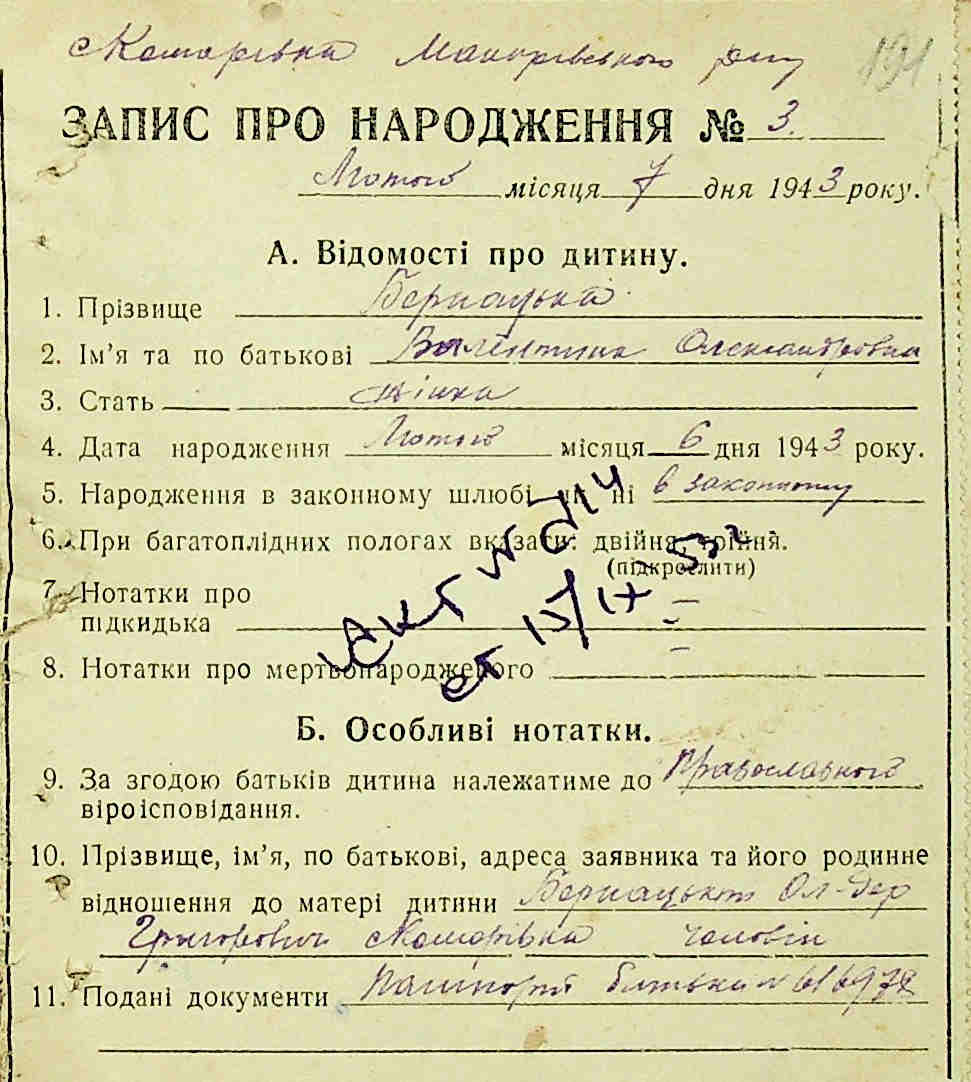 с Комарівка Макарівського р-ну 191
ЗАПИС ПРО НАРОДЖЕННЯ № 3.
Лютого місяця 7 дня 1943 року.
А. Відомості про дитину.
1. Прізвище Бернацька
2. Ім’я та по батькові Валентина Олександровна
3. Стать жінка
4. Дата народження Лютого місяця 6 дня 1943 року.
5. Народження в законному шлюбі чи ні в законному
6. При багатоплідних пологах вказати: двійня, трійня.
(підкреслити)
7. Нотатки про
підкидька
8. Нотатки про мертвонародженого
Акт №
от 15/IX-
Б. Особливі нотатки.
9. За згодою батьків дитина належатиме до Православного
віроісповідання.
10. Прізвище, ім’я, по батькові, адреса заявника та його родинне
відношення до матері дитини Бернацький Ол-дер
Григорович с Комарівка чоловік
11. Подані документи Пашпорт батька № 616978